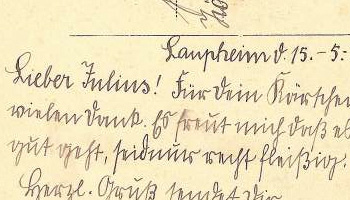 Laupheim d. 15.-5.
Lieber Julius! Für Dein Kärtchen
vielen Dank. Es freut mich daß es
gut geht, seid nur recht fleißig.
Herzl. Gruß sendet Dir